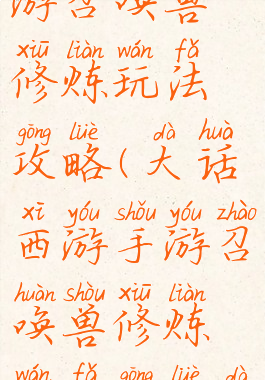 游召唤兽
xiū liàn wán fǎ
修炼玩法
gōng lüè dà huà
攻略(大话
xī yóu shǒu yóu zhào
西游手游召
huàn shòu xiū liàn
唤兽修炼
wán fǎ gōng lüè dà